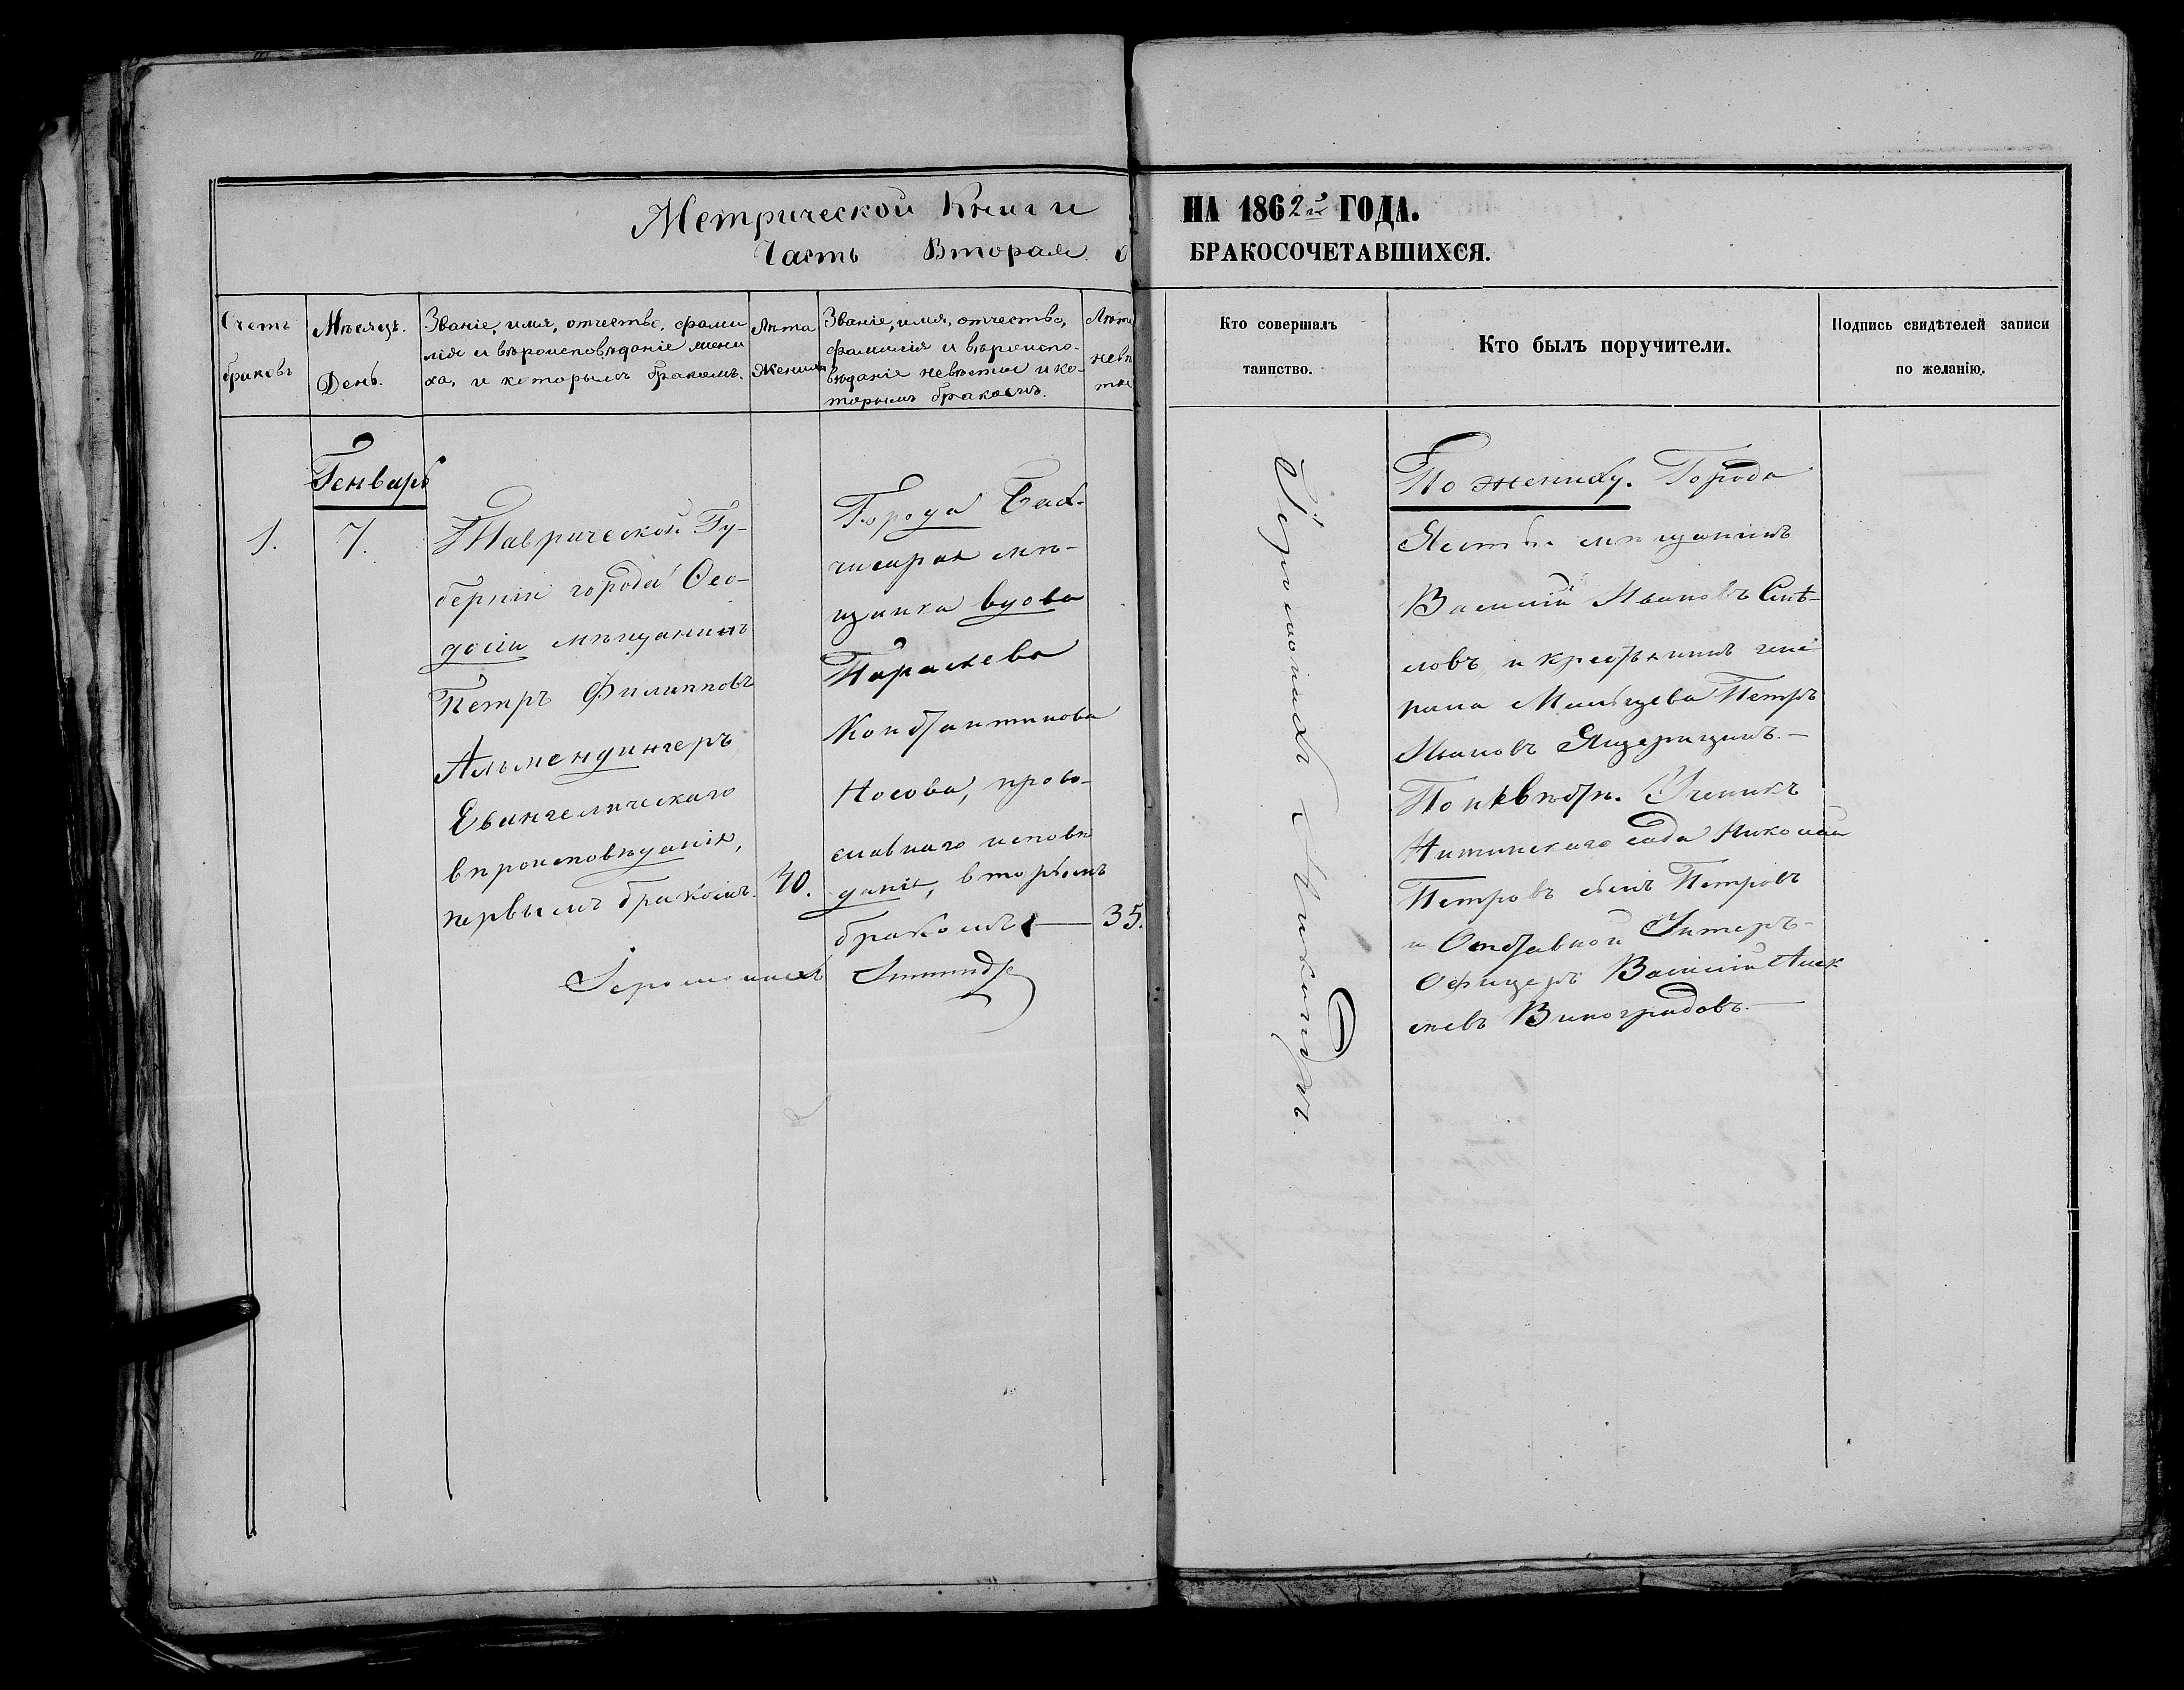 Метрической Книги
Часть Вторая о
НА 1862й ГОДА.
БРАКОСОЧЕТАВШИХСЯ.
Счетъ
браковъ
Мѣсяцъ.
День.
Званіе, имя, отчество, фами
лія и вѣроисповѣданіе жени
ха, и которымъ бракомъ.
Лѣта
Жениха
Званіе, имя, отчество,
фамилія и вѣроиспо-
вѣданіе невѣсты и ко-
торымъ бракомъ.
Лѣта
невѣ
сты
Кто совершалъ
таинство.
Кто былъ поручители.
Подпись свидѣтелей записи
по желанію.
Генварь
1.
7.
Таврической Гу-
берніи города Ѳео-
досіи мѣщанинъ
Петръ Филипповъ
Альмендингеръ
Евангелическаго
вѣроисповѣданія,
первымъ бракомъ.
40.
Города Бах-
чисарая мѣ-
щанка вдова
Параскева
Константинова
Носова, право-
славнаго исповѣ
данія, вторымъ
бракомъ
35.
Іеромонахъ
Іеромонахъ
По жениху. Города
Ялты мѣщанинъ
Василій Ивановъ
и крестьянинъ гене
рала Мальцева Петръ
Ивановъ
По невѣстѣ. Ученикъ
Никитскаго сада Николай
Петровъ сынъ Петровъ
и Отставной Унтеръ-
Офицеръ Василій Алек
сѣевъ Виноградовъ.